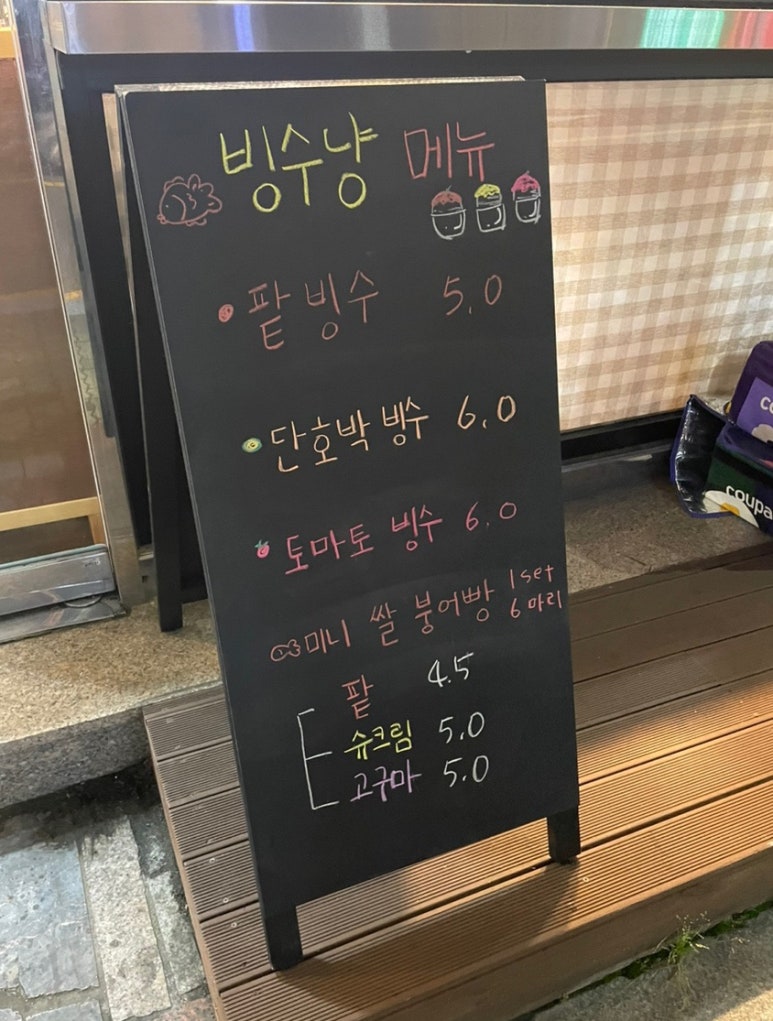 빙수냥 메뉴
팥빙수 5.0
단호박 빙수 6.0
토마토 빙수 6.0
미니 쌀 붕어빵 1set 6마리
팥 4.5
슈크림 5.0
고구마 5.0
coupa